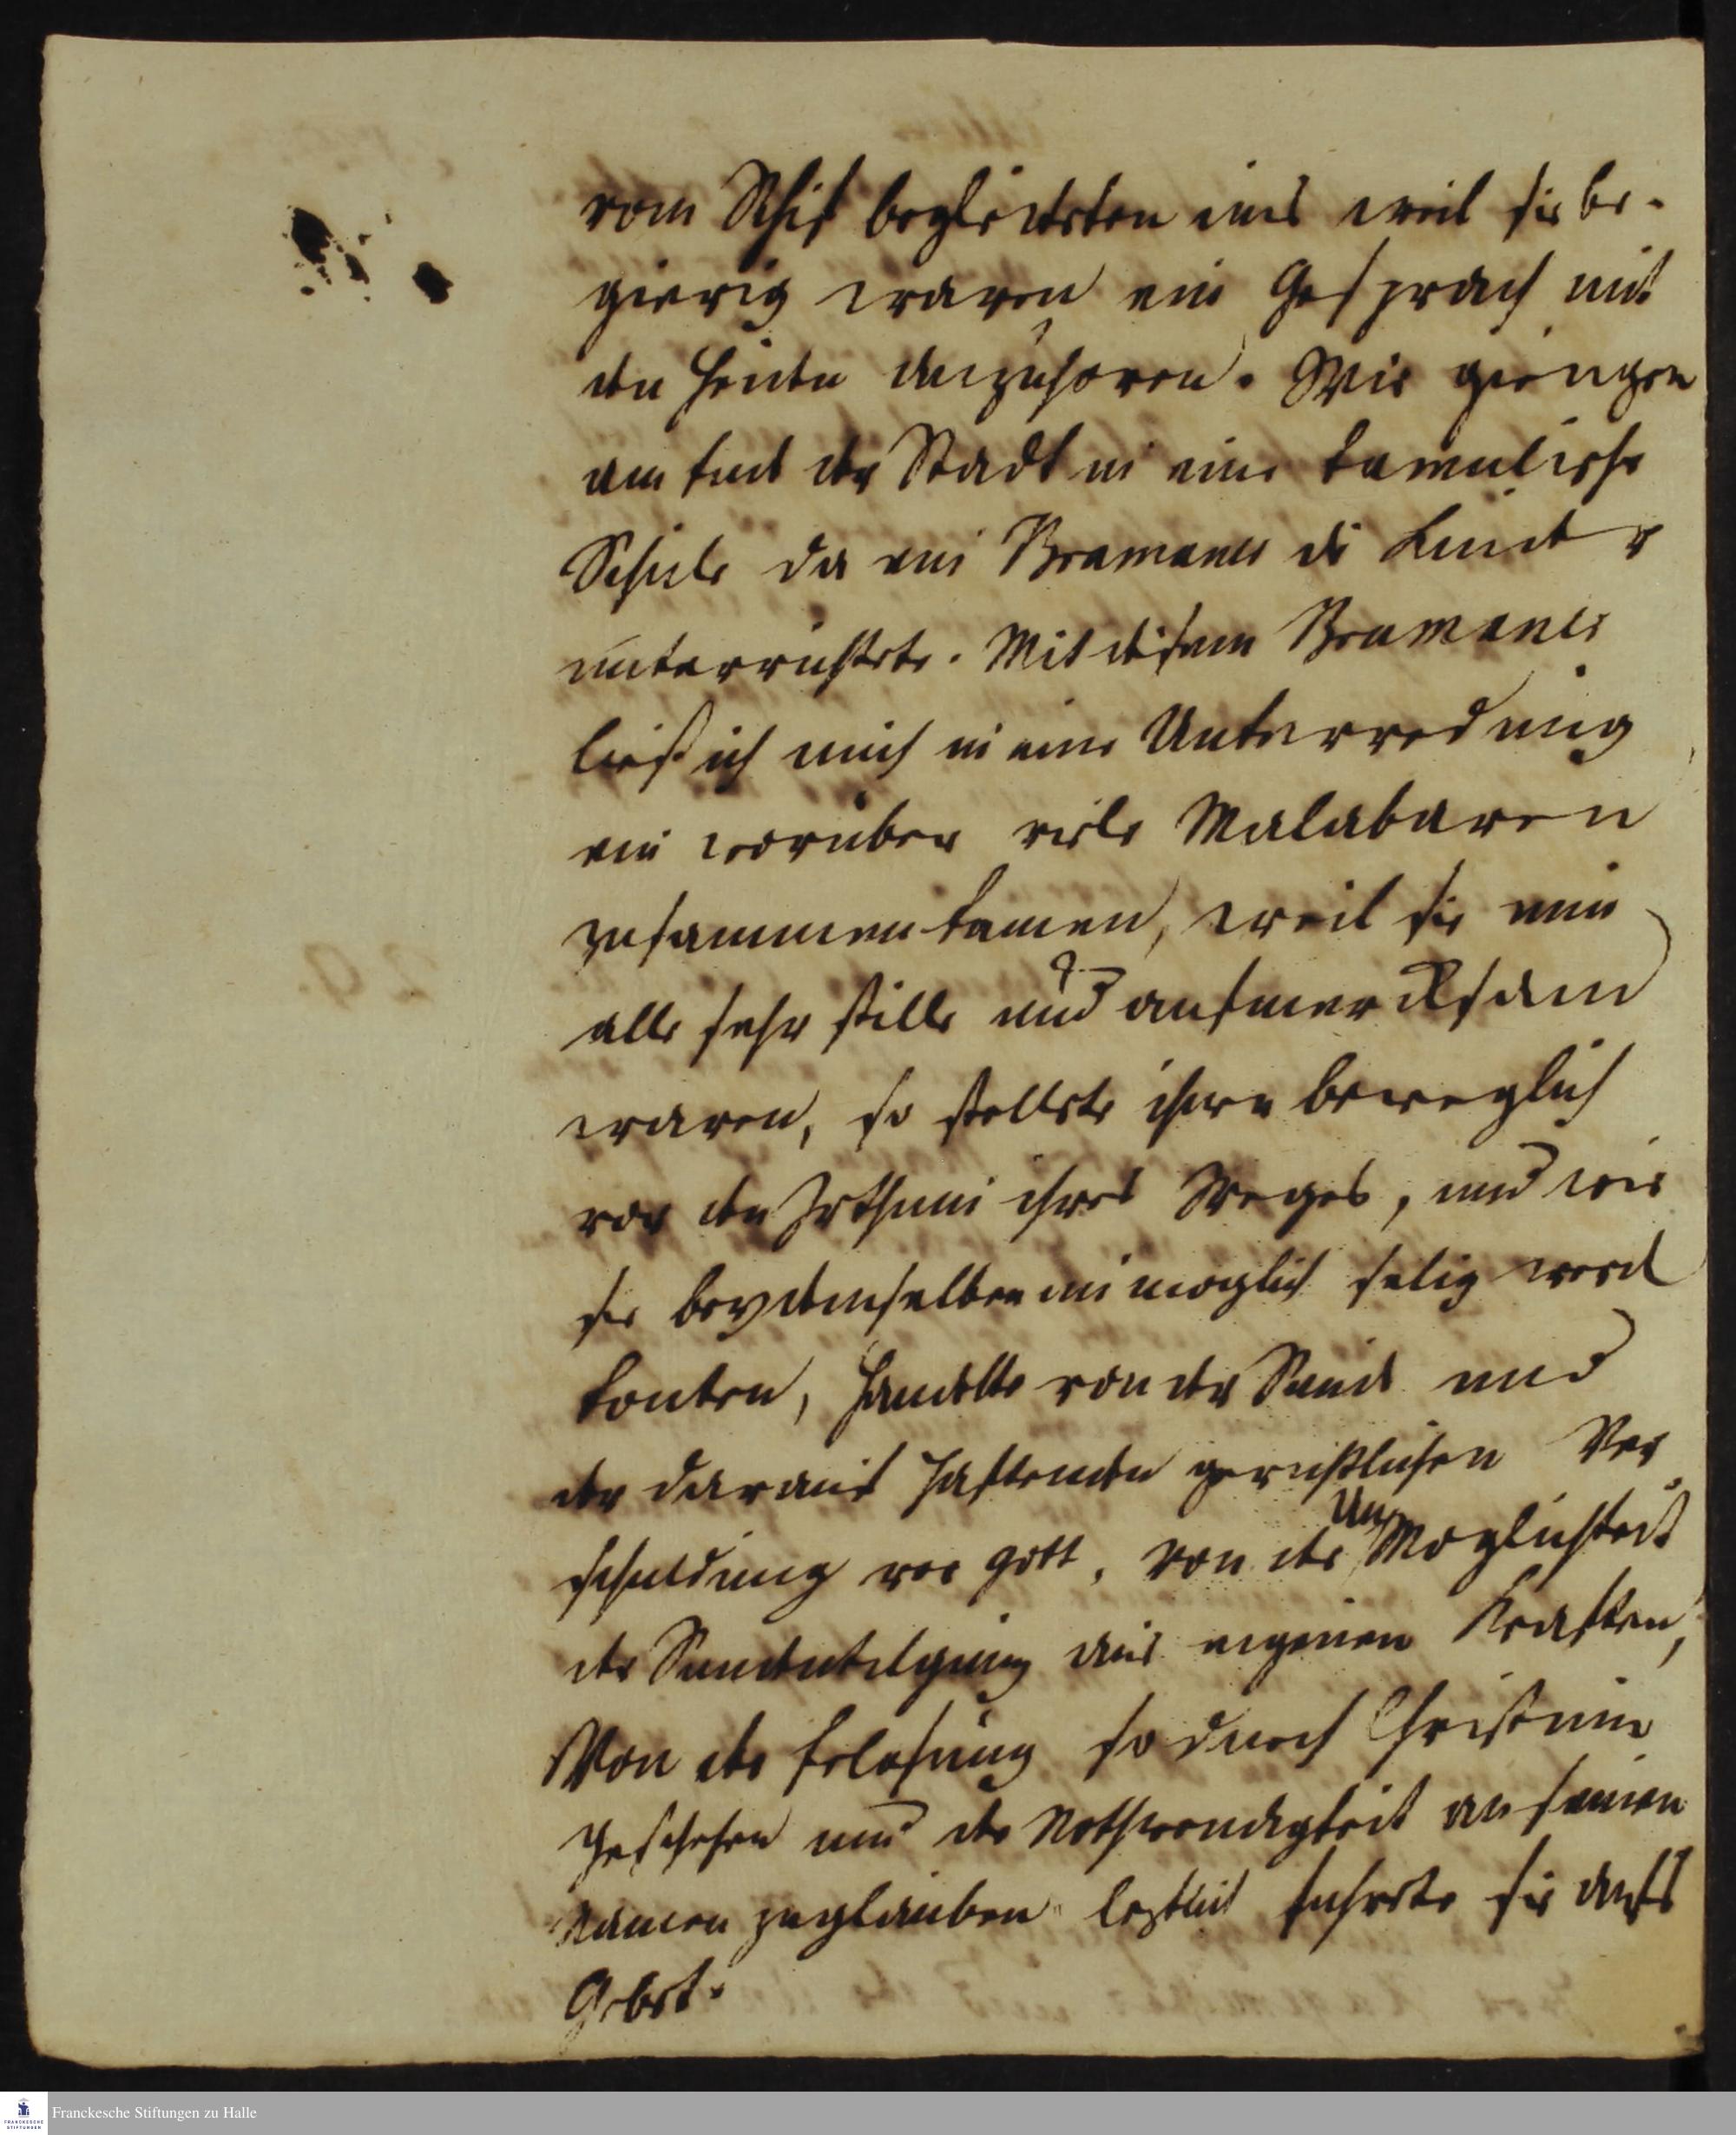 vom Schif begleiteten uns weil sie be-
gierig waren ein Gesprach mit
den Heiden anzuhoren. Wir giengen
am End der Stadt in eine tamulische
Schule da ein Bramanes die Kinder
unterrichtete. Mit diesem Bramanes
ließ ich mich in eine Unterredung
ein woruber viele Malabaren
zusammen kamen, weil sie nun
alle sehr stille und aufmercksam
waren, so stellete ihnen beweglich
vor den Irthum ihres Weges, und wie
sie bey demselben unmoglich selig werd
konten, handelte von der Sund und
der daraus haftenden gerichtlichen Ver
schuldung vor Gott, von der Un Moglichkeit
der Sundentilgung aus eigenen Kraften,
Von der Erlosung so durch Christum
geschehen und der Nothwendigkeit an seinen
Namen zu glauben letzlich fuhrete sie aufs
Gebet.
Franckesche Stiftungen zu Halle